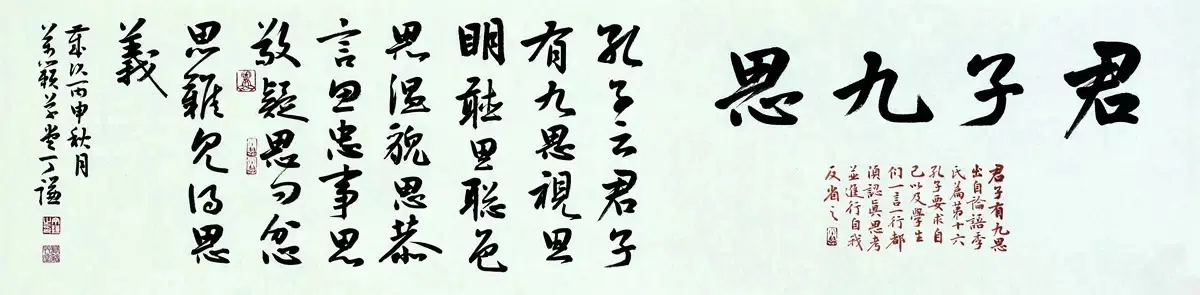 君子九思
君子有九思
出自論語季
氏篇第十六
孔子要求自
己以及學生
们一言一行都
須認眞思考
並進行自我
反省之
孔子云君子
有九思視思
明聽思聰色
思温貌思恭
言思忠事思
敬疑思问忿
思難見得思
義
歲次丙申秋月
萬籟草堂丁謙